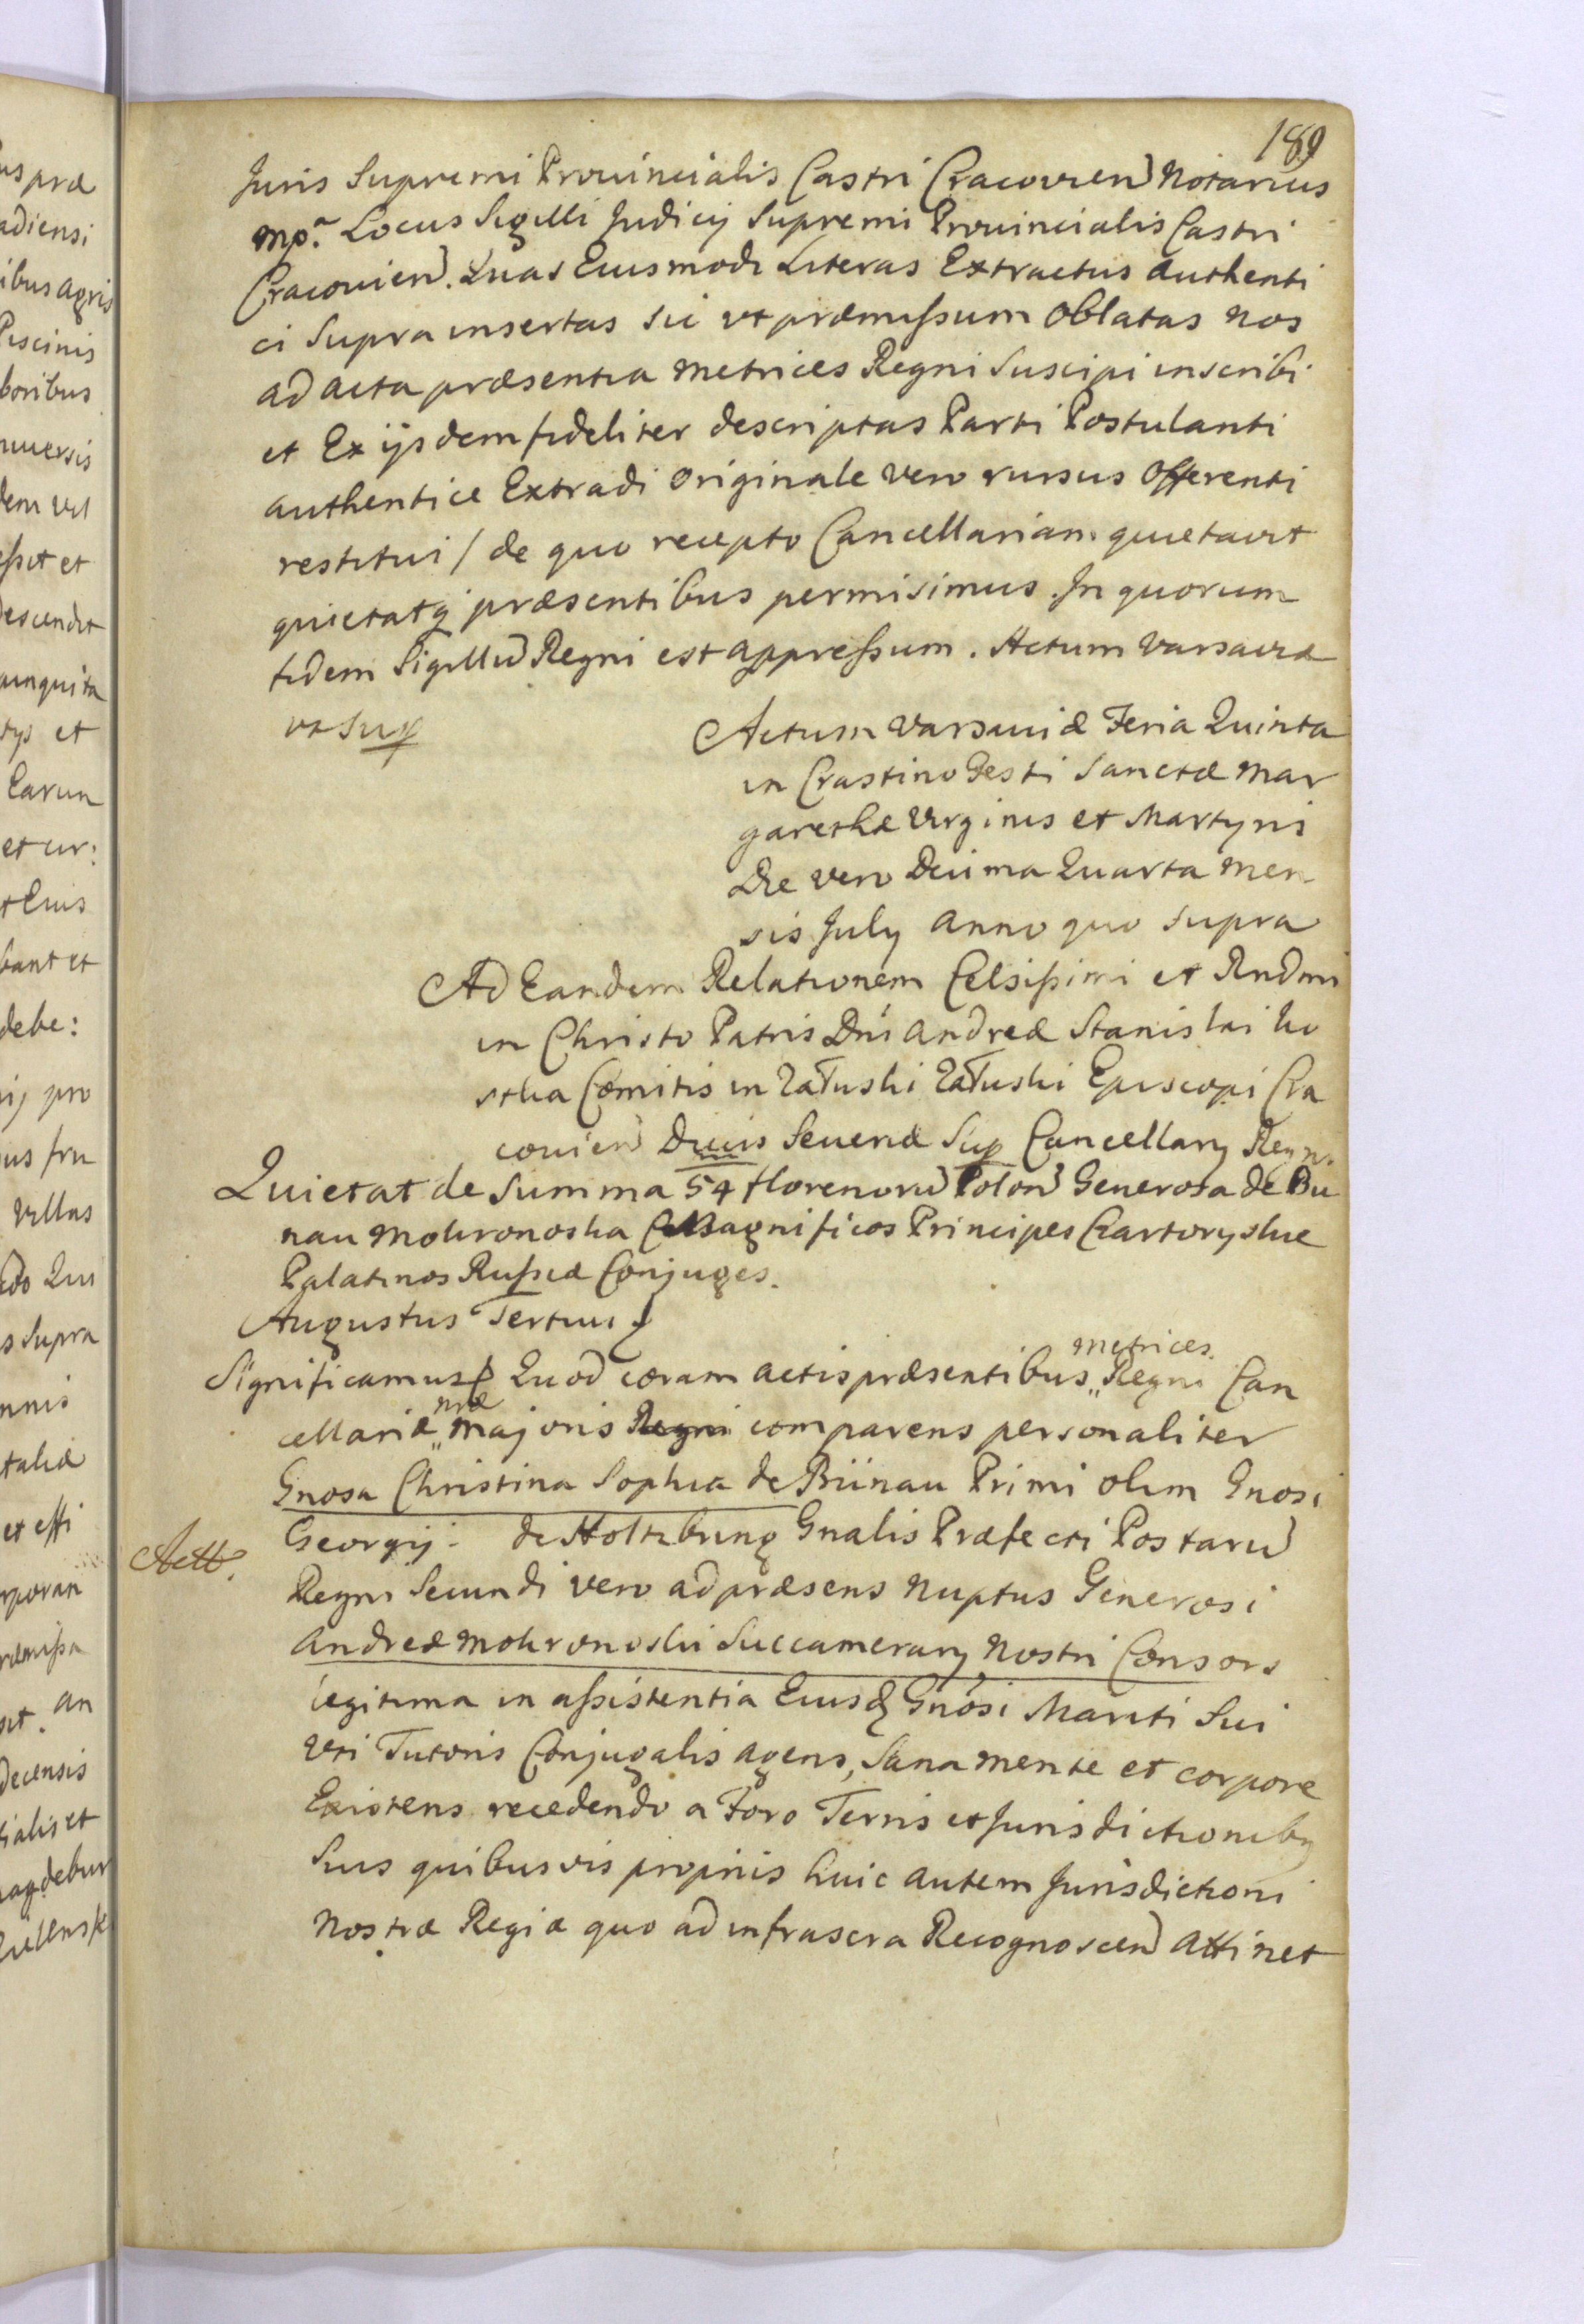 189
Juris Supremi Prouincialis Castri Cracovien Notarius
mpa. Locus Sigilli Judicij Supremi Prouincialis Castri
Cracouien. Quas Eiusmodi Literas Extractus authenti
ci Supra insertas sic vt præmissum oblatas nos
ad acta præsentia metrices Regni Suscipi inscribi
et Ex ijsdem fideliter descriptas Parti Postulanti
authentice Extradi originale vero rursus offerenti
restitui / de quo recepto Cancellariam quietavit
quietatq præsentibus permisimus. In quorum
fidem Sigillu Regni est appressum. Actum varsaviæ
vt Sup
Actum varsauiæ Feria Quinta
in Crastino Festi Sanctæ Mar
garethæ Virginis et Martyris
Die vero Decima Quarta Men
sis July anno quo supra
Ad Eandem Relationem Celsissimi et Rndmi
in Christo Patris Dni andreæ Stanislai ko
stka Comitis in Załuski Załuski Episcopi Cra
couien Ducis Seueriæ Sup Cancellary Regn.
Quietat de Summa 54 florenoru Polon Generosa de Bu
nau Mokronoska Magnificos Principes Czartoryskie
Palatinos Russiæ Conjuges.
Augustus Tertius
Significamus Quod coram actis præsentibus „ metrices. Regni Can
cellariæ „ nræ majoris Regni comparens personaliter
Gnosa Christina Sophia de Bünau Primi olim Gnosi
Georgij de Holtzbring Gnalis Præfecti Postaru
Actt.
Regni Secundi vero ad præsens nuptus Generosi
andreæ Mokronoski Succamerary Nostri Consors
legitima in assistentia Eiusd Gnosi Mariti Sui
vti Tutoris Conjugalis agens, Sana mente et corpore
Existens recedendo a Foro Terris et Jurisdictionibq
Suis quibusvis proprijs huic autem Jurisdictioni
Nostræ Regiæ quo ad infrascra Recognoscen attinet
us præ
adiensi
ibus agris
Piscinis
boribus
niuersis
dem vel
essit et
descendit
et
Earum
et ur:
t Eius
bant et
debe:
ij pro
us fru
villas
Qui
s Supra
mnis
taliæ
et effi
rporan
ræmissa
sit. an
decensis
ialis et
agdebur